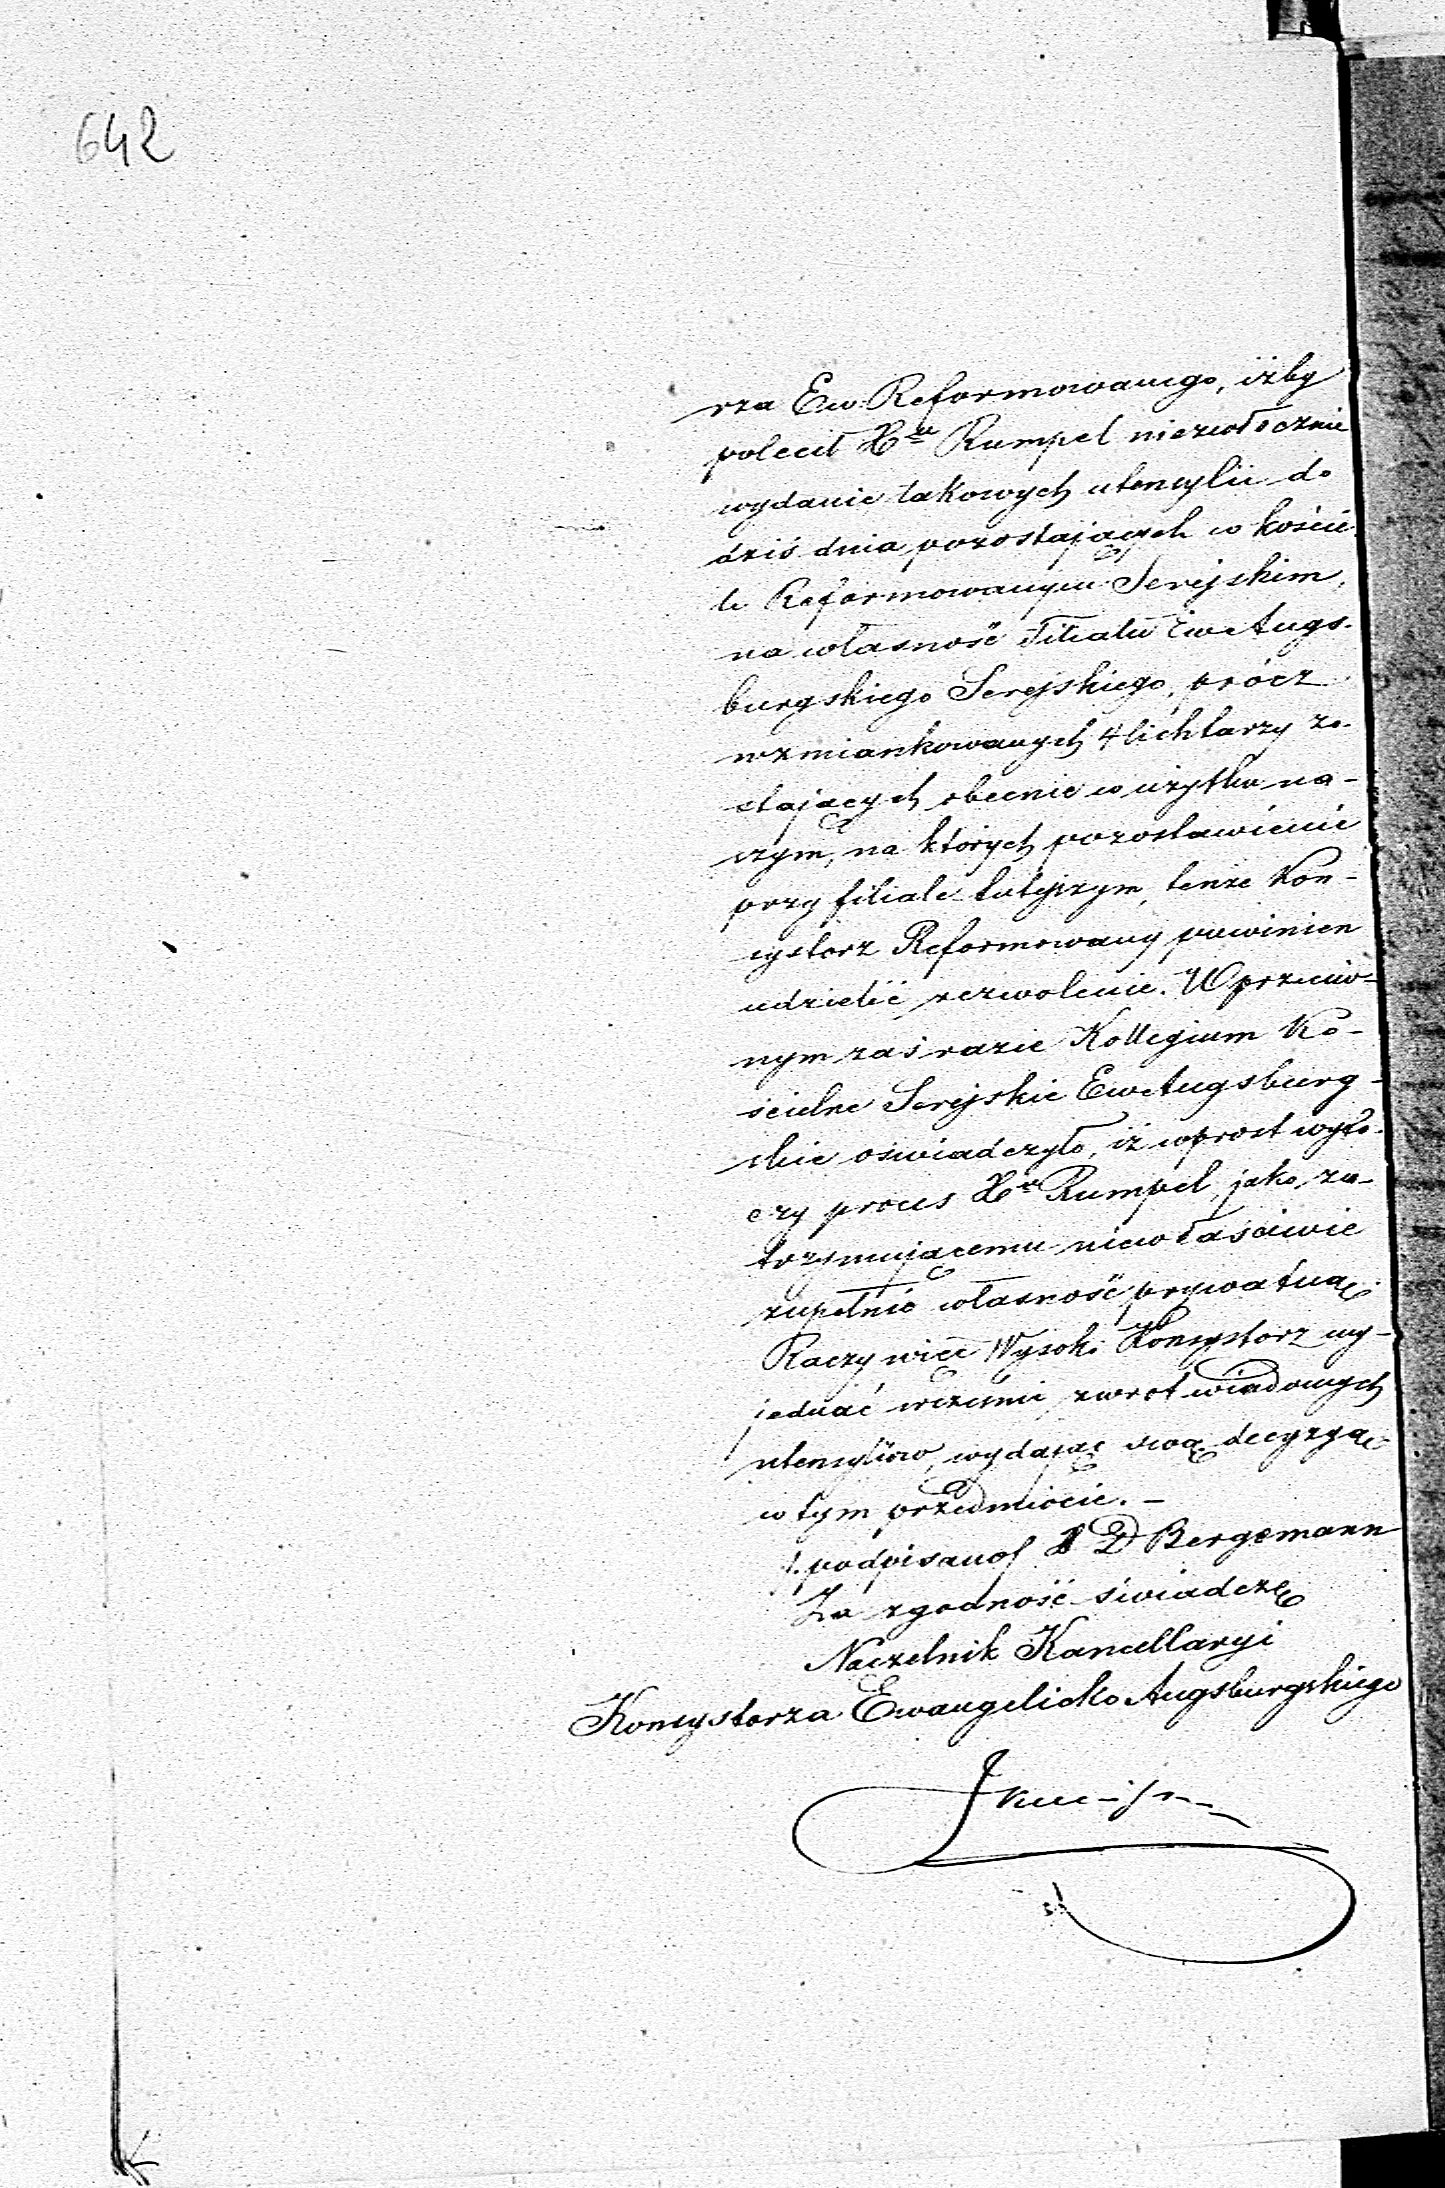 642
rza Ew. Reformowanego, iżby
polecił Xu Rumpel niezwłocznie
wydanie takowych utensylii do
dziś dnia pozostających w koście
le Reformowanym Serejskim,
na własność Filiału Ew Augs-
burgskiego Serejskiego, prócz
wzmiankowanych 4 lichtarzy zo-
stających obecnie w użytku na-
szym, na których pozostawienie
przy filiale tutejszym, tenże Kon-
systorz Reformowany powinien
udzielić zezwolenie. W przeciw-
nym zaś razie Kollegium Ko-
ścielne Serejskie Ew Augsburg-
skie oświadczyło, iż wprost wyto-
czy proces Xu Rumpel, jako za-
trzymującemu niewłaściwie
zupełnie własność prywatną.
Raczy więc Wysoki Konsystorz wy-
jednać wcześnie zwrot wiadomych
utensyliów, wydając swą decyzyą
w tym przedmiocie. –
/. podpisano/ X D Bergemann
Za zgodność świadczę
Naczelnik Kancellaryi
Konsystorza Ewangelicko Augsburgskiego